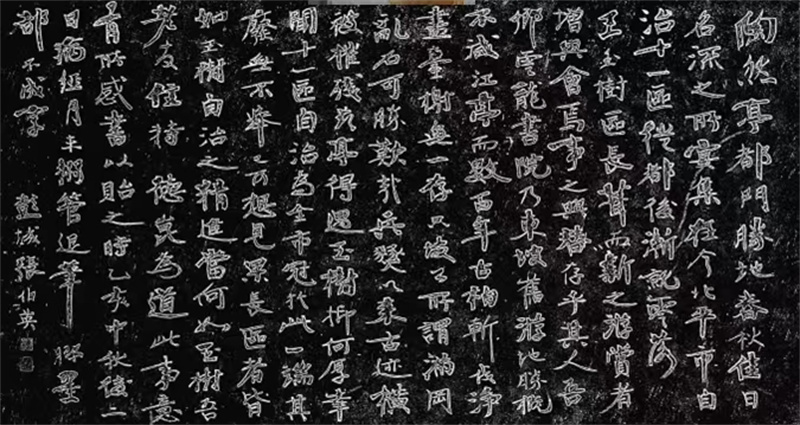 陶然亭都門勝地春秋佳日
名流之所宴集在今北平市自
治十一區從都後漸就零落
王玉樹區長葺而新之游賞者
增興會焉事之興替存乎其人吾
鄉雲龍書院乃東坡舊游地勝概
不減江亭而數百年古柏斬伐淨
盡臺榭無一存只坡公所謂滿岡
亂石可勝歎哉兵燹以來古迹橫
被摧殘茲亭得遇玉樹抑何厚幸
聞十一區自治為全市冠於此一端其
廢無不舉可想見果長區者皆
如玉樹自治之精進當何如玉樹吾
老友任德崑為道此事意
有所感書以貽之時乙亥中秋後二
日病經月未搦管退筆膠墨
都不成字 彭城張伯英